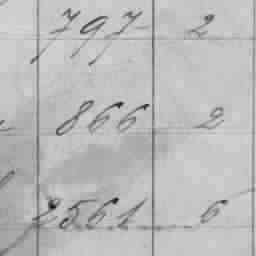 797 2
866 2
2561 6